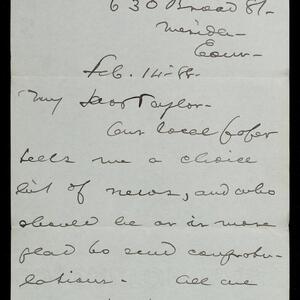 630 Broad St-
Meriden-
Conn-
Feb. 14-88-
My Dear Taylor-
Our local paper
tells me a choice
bit of news, and who
should be or is more
glad to send congratu-
lations- All are